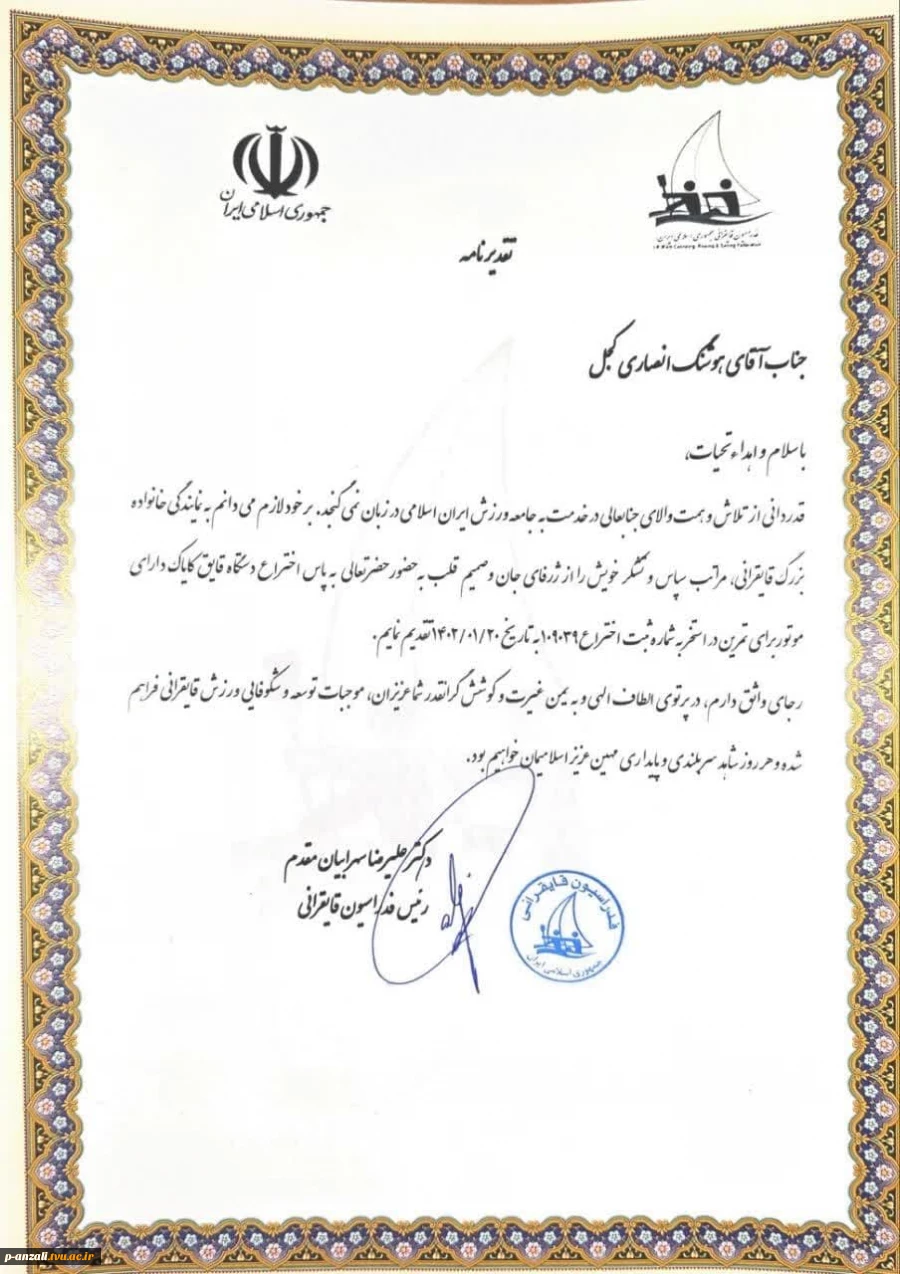 جمهوری اسلامی ایران
فدراسیون قایقرانی جمهوری اسلامی ایران
I.R.IRAN Canoeing, Rowing & Sailing Federation
تقدیرنامه
جناب آقای هوشنگ انصاری کجل
با سلام و اهداء تحیات،
قدردانی از تلاش و همت والای جنابعالی در خدمت به جامعه ورزش ایران اسلامی در زبان نمی گنجد. بر خود لازم می دانم به نمایندگی خانواده
بزرگ قایقرانی، مراتب سپاس و تشکر خویش را از ژرفای جان و صمیم قلب به حضور حضرتعالی به پاس اختراع دستگاه قایق کایاک دارای
موتور برای تمرین در استخر به شماره ثبت اختراع ۱۰۹۰۳۹ به تاریخ ۱۴۰۲/۰۱/۲۰ تقدیم نمایم.
رجای واثق دارم، در پرتوی الطاف الهی و به یمن غیرت و کوشش گرانقدر شما عزیزان، موجبات توسعه و شکوفایی ورزش قایقرانی فراهم
شده و هر روز شاهد سربلندی و پایداری میهن عزیز اسلامیمان خواهیم بود.
دکتر علیرضا سهرابیان مقدم
رئیس فدراسیون قایقرانی
فدراسیون قایقرانی
جمهوری اسلامی ایران
p-anzali.tvu.ac.ir